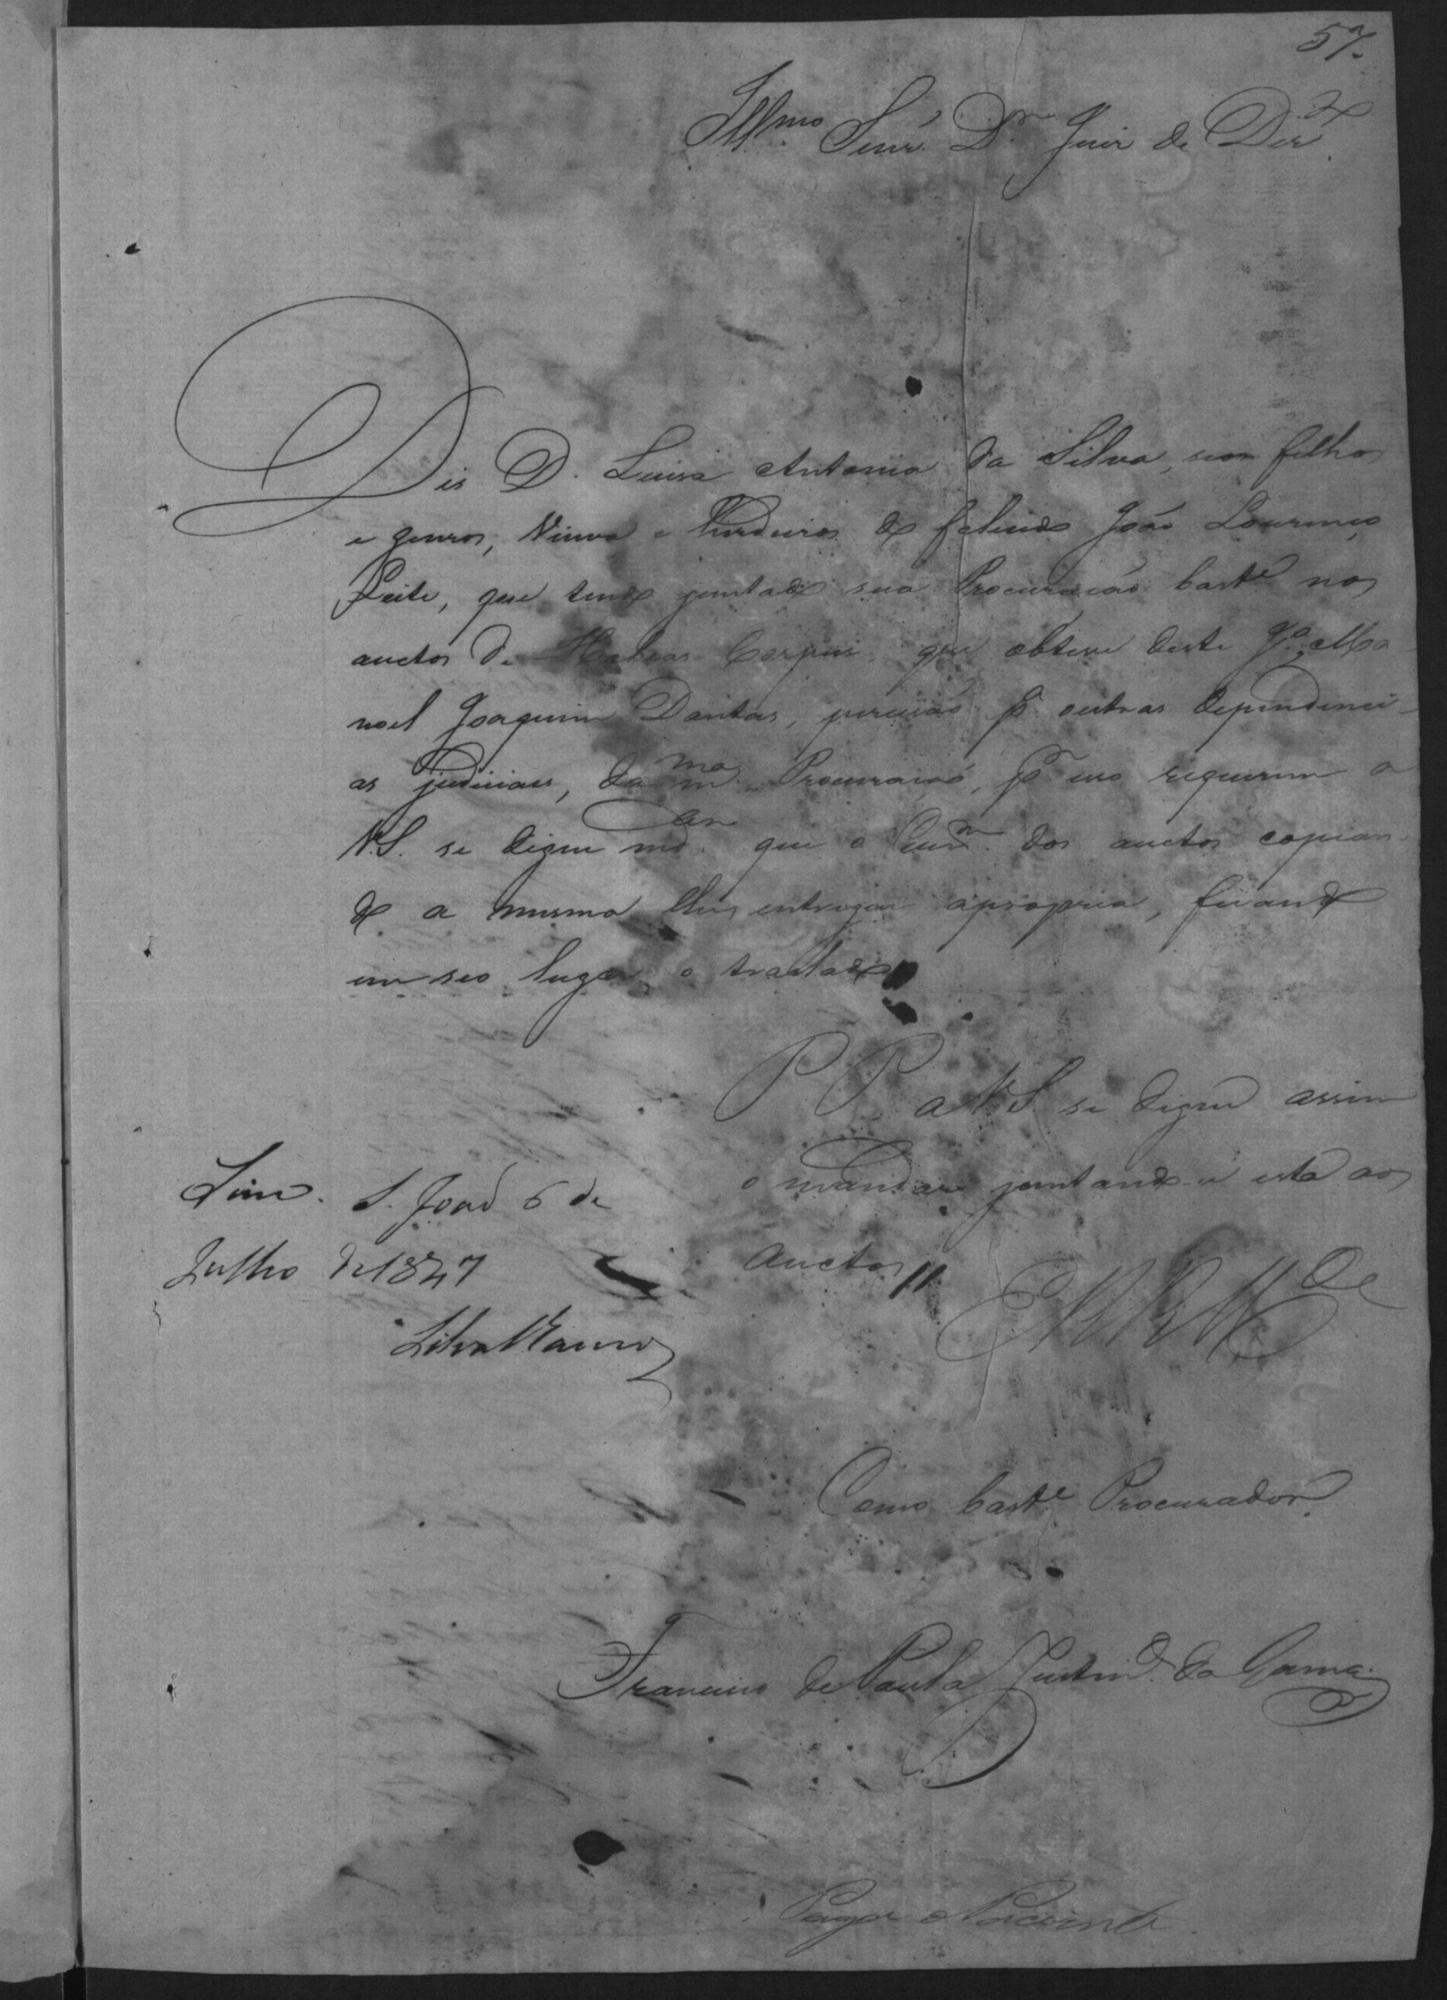 57.
Illmo. Senr. Dr. Juiz de Dirto.
Dis D. Luisa Antonia da Silva, seos filhos
e genros, Viuva e herdeiros do falecido João Lourenço
Leite, que tendo juntado sua Procuração baste. nos
auctos de Habeas Corpus que obteve deste Jo. Ma-
noel Joaquim Dantas, precisão pa. outras dependenci-
as judiciaes, da mma. Procuração, pr. isso requerem a
V.S. se digne mdar. que o Escm. dos auctos copian-
do a mesma lhes entregue apropria, ficando
em seo lugar o traslado
P P a V.S. se digne assim
o mandar juntando-se esta aos
auctos //
E R Mce
Sim. S. João 6 de
Julho de 1847
Silva Mauro
Como baste. Procurador
Francisco de Paula Justino da Gama
Pagar